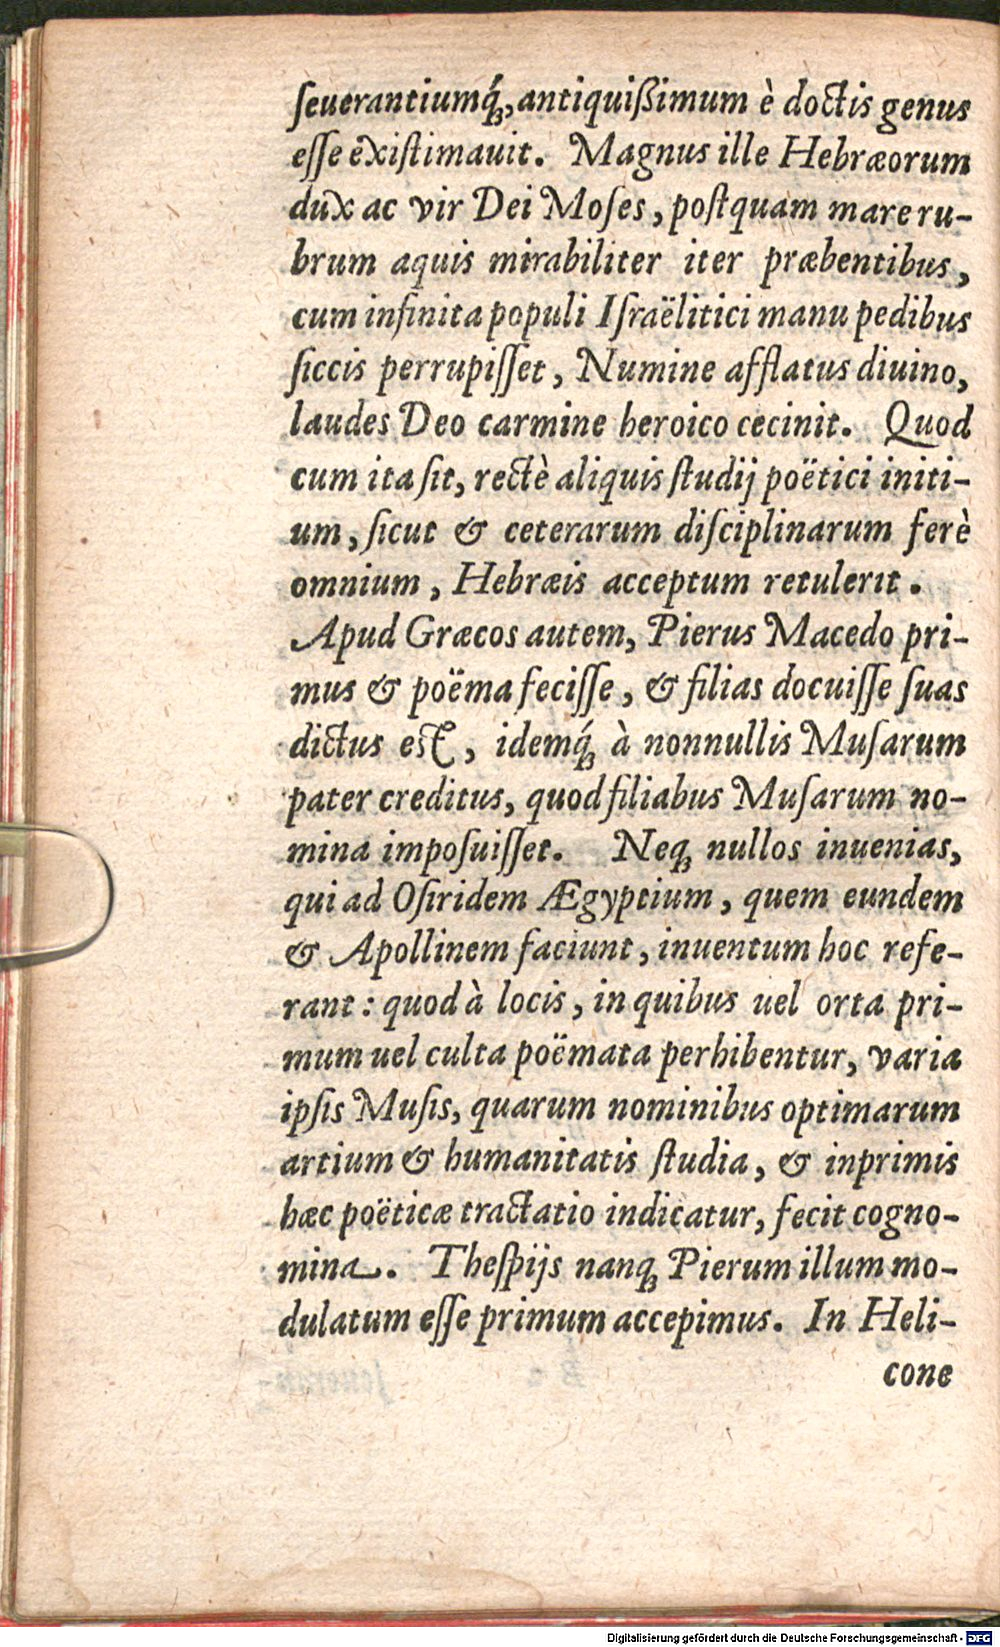 ſeuerantiumq́;, antiquißimum è doctis genus
eſſe exiſtimauit. Magnus ille Hebræorum
dux ac vir Dei Moſes, poſtquam mare ru-
brum aquis mirabiliter iter præbentibus,
cum infinita populi Iſraëlitici manu pedibus
ſiccis perrupiſſet, Numine afflatus diuino,
laudes Deo carmine heroico cecinit. Quod
cum ita ſit, rectè aliquis ſtudij poëtici initi-
um, ſicut & ceterarum diſciplinarum ferè
omnium, Hebræis acceptum retulerit.
Apud Græcos autem, Pierus Macedo pri-
mus & poëma feciſſe, & filias docuiſſe ſuas
dictus est, idemq́; à nonnullis Muſarum
pater creditus, quod filiabus Muſarum no-
mina impoſuiſſet. Neq; nullos inuenias,
qui ad Oſiridem Ægyptium, quem eundem
& Apollinem faciunt, inuentum hoc refe-
rant: quod à locis, in quibus uel orta pri-
mum uel culta poëmata perhibentur, varia
ipſis Muſis, quarum nominibus optimarum
artium & humanitatis ſtudia, & inprimis
hæc poëticæ tractatio indicatur, fecit cogno-
mina. Theſpijs nanq; Pierum illum mo-
dulatum eſſe primum accepimus. In Heli-
cone
Digitalisierung gefördert durch die Deutsche Forschungsgemeinschaft - DFG